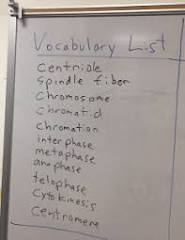 Vocabulary List
Centriole
Spindle fiber
Chromosome
Chromatid
Chromation
interphase
metaphase
anaphase
telophase
Cytokinesis
Centromere